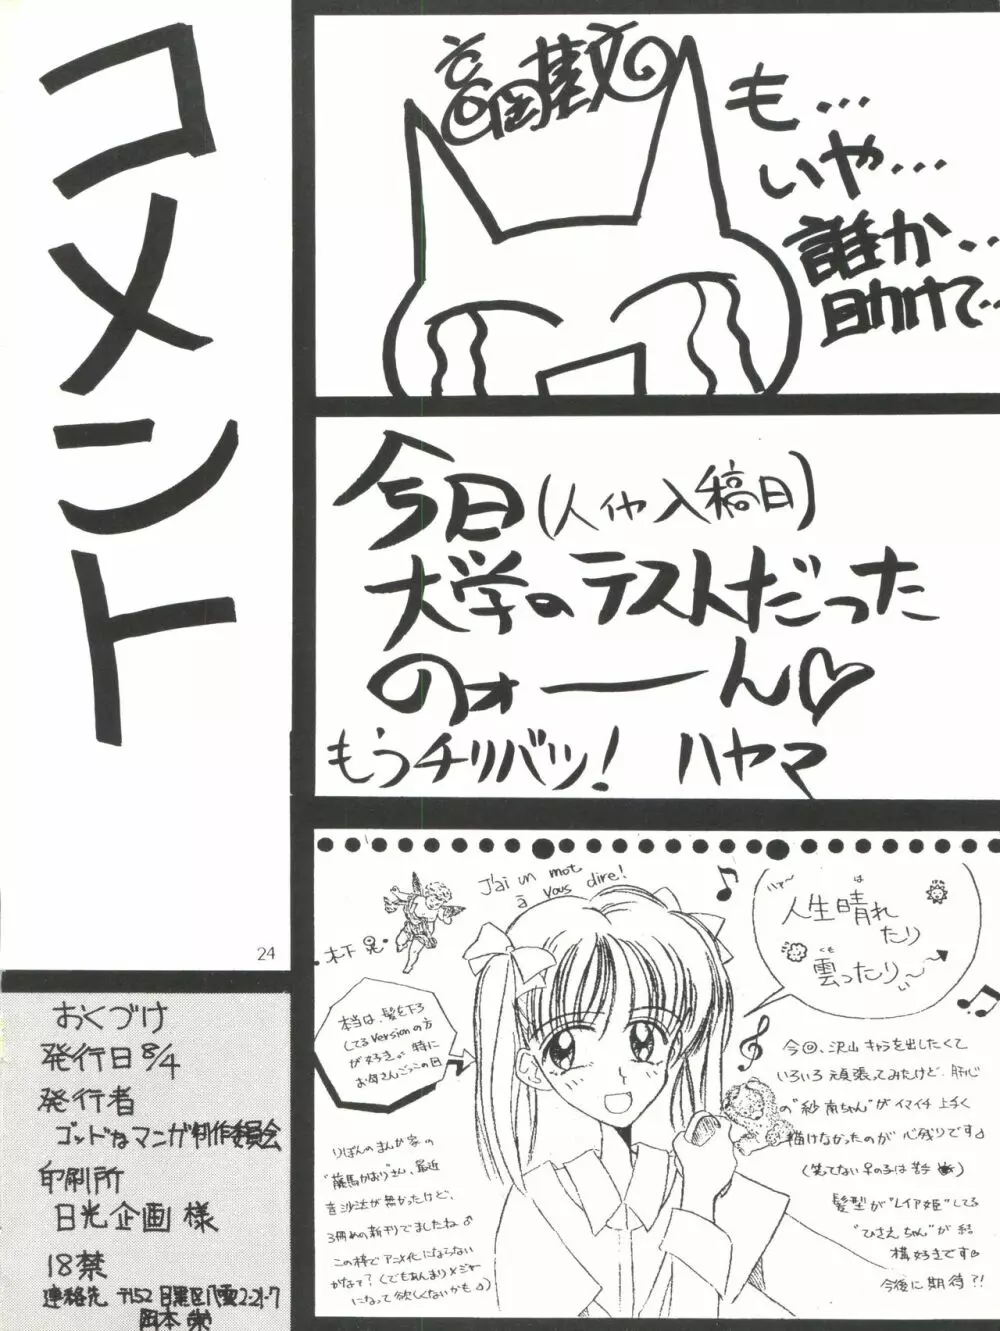 コメント
高岡基文
も…
いや…
誰か…
助けて…
今日(人イヤ入稿日)
大学のテストだった
のォーーん♡
もうチリバツ! ハヤマ
J'ai un mot
à vous dire!
木下晃
人生晴れ
は
たり
雲ったり
くも
本当は、髪を下ろ
してるVersionの方
が好き。特に
お母さんごっこの日
今回、沢山キャラを出したくて
いろいろ頑張ってみたけど、肝心
の"紗南ちゃん"がイマイチ上手く
描けなかったのが心残りです♪
(笑ってない♀の子は苦手)
髪型が"レイア姫"してる
"ひさえちゃん"が結
構好きです
今後に期待?!
りぼんのまんが家の
"藤馬かおり"さん、最近
音沙汰が無かったけど、
3冊めの新刊でましたね♪
この枠でアニメ化にならない
かなぁて?(でもあんまりメジャー
になって欲しくないかも♪)
24
おくづけ
発行日8/4
発行者
ゴッドなマンガ制作委員会
印刷所
日光企画様
18禁
連絡先 〒152 目黒区八雲2-21-7
岡本崇